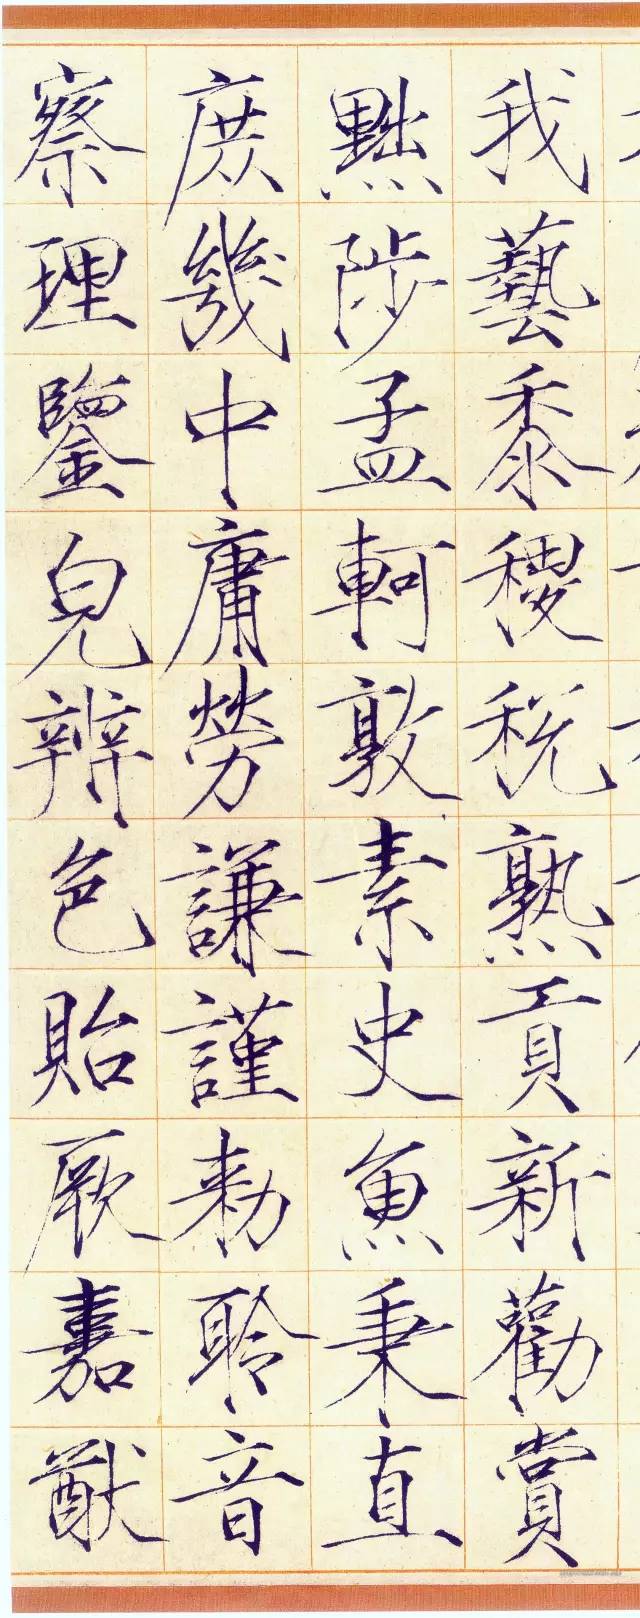 我藝黍稷稅熟貢新勸賞
黜陟孟軻敦素史魚秉直
庶幾中庸勞謙謹勑聆音
察理鑒皃辨色貽厥嘉猷